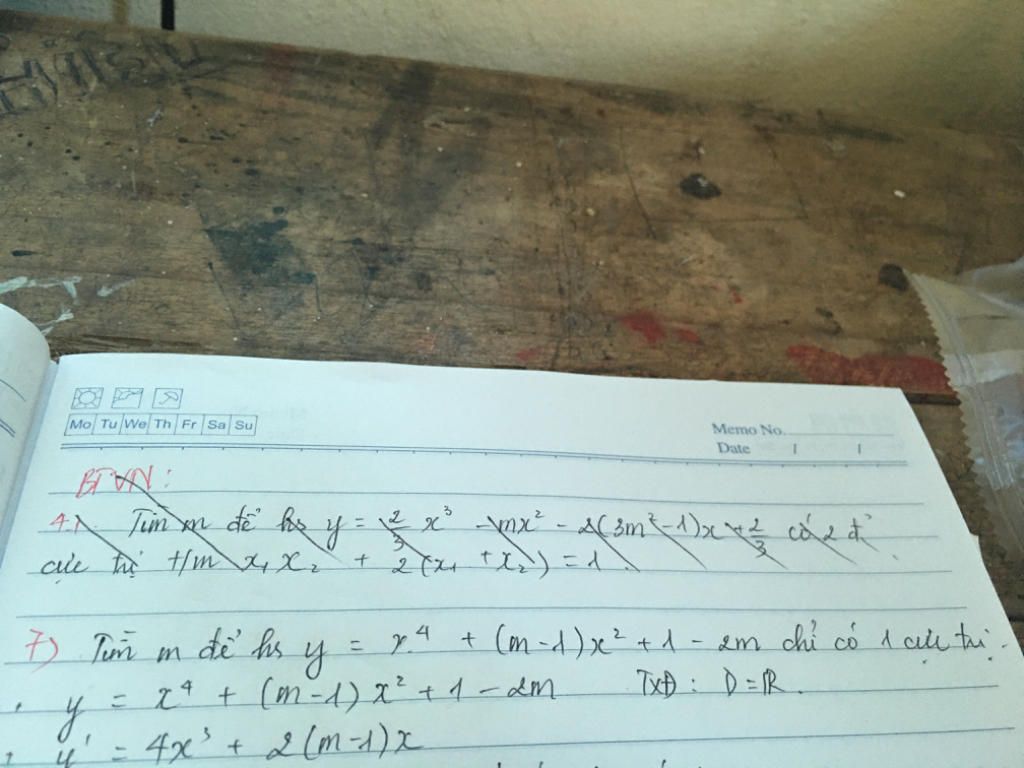 Mo Tu We Th Fr Sa Su
Memo No.
Date / /
BTVN:
4.) Tìm m để hs y = 2/3 x³ - mx² - 2(3m² - 1)x + 2/3 có 2 đ'
cực trị t/m x₁x₂ + 2(x₁ + x₂) = 1.
7) Tìm m để hs y = x⁴ + (m-1)x² + 1 - 2m chỉ có 1 cực trị.
. y = x⁴ + (m-1)x² + 1 - 2m TXĐ: D = ℝ.
y' = 4x³ + 2(m-1)x